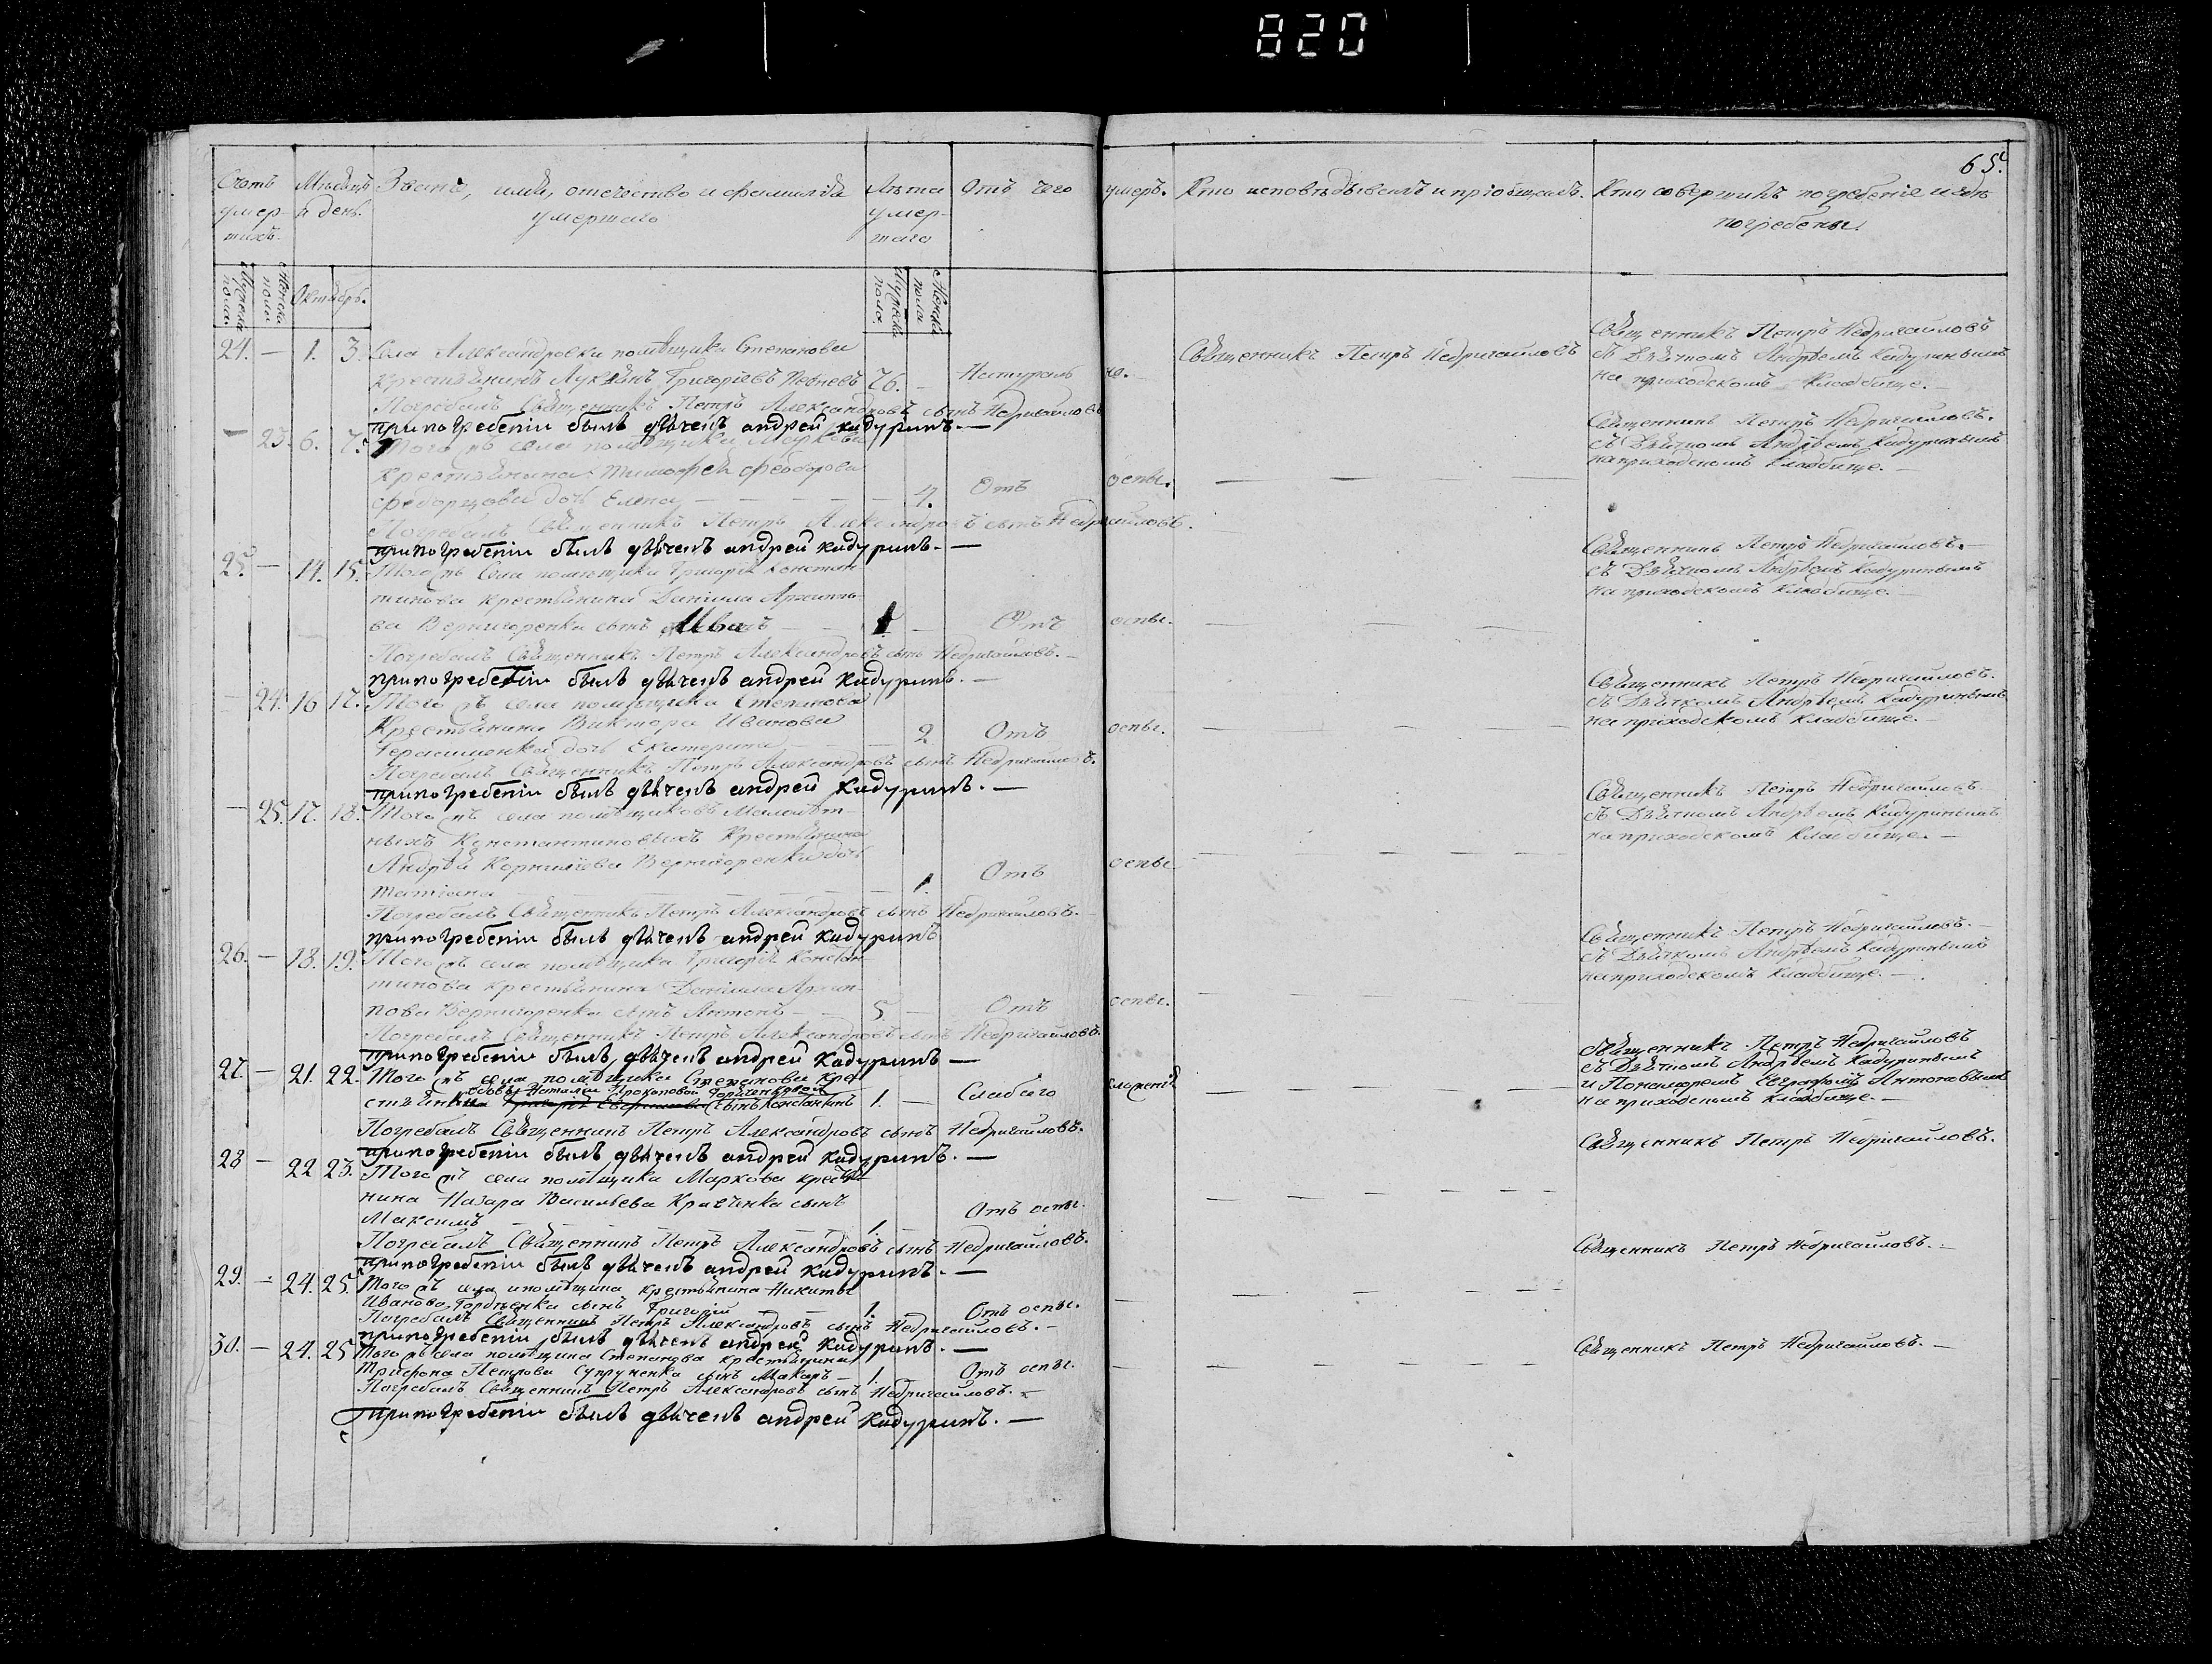 820
65.
Счетъ умер-шихъ.
Мѣсяцъ и день.
Званіе, имя, отечество и фамилія умершаго
Лѣта умер-шаго
Отъ чего умеръ.
Кто исповѣдывалъ и пріобщалъ.
Кто совершилъ погребеніе и гдѣ погребены.
Мужеска пола.
Женска пола
Октябрь.
Мужеска пола.
Женска пола
24. — 1. 3. Села Александровки помѣщика Степанова
крестьянинъ Лукьянъ Григорьевъ 76. — Натураль но.
Священникъ Петръ Недригайловъ
Священникъ Петръ Недригайловъ
съ Дьячкомъ Андреемъ Кадуринымъ
на приходскомъ кладбище. —
Погребалъ Священникъ Петръ Александровъ сынъ Недригайловъ
припогребеніи былъ дьячекъ андрей кадуринъ. —
— 23. 6. 7. Того жъ села помѣщика Маркова
крестьянина Тимофея Феодорова
дочь Елена — — — — 4. Отъ оспы.
Священникъ Петръ Недригайловъ.
съ Дьячкомъ Андреемъ Кадуринымъ
на приходскомъ кладбище. —
Погребалъ Священникъ Петръ Александровъ сынъ Недригайловъ.
припогребеніи былъ дьячекъ андрей кадуринъ. —
25. — 14. 15. Того жъ Села помѣщика Григорія Констан-
тинова крестьянина Даніила Архипо-
ва Вернигоренка сынъ Иванъ — 1 — Отъ оспы.
Священникъ Петръ Недригайловъ. —
съ Дьячкомъ Андреемъ Кадуринымъ
на приходскомъ кладбище. —
Погребалъ Священникъ Петръ Александровъ сынъ Недригайловъ. —
припогребеніи былъ дьячекъ андрей кадуринъ. —
— 24. 16 17. Того жъ села помѣщика Степанова
Крестьянина Виктора Иванова
Герасименка дочь Екатерина — 2 Отъ оспы.
Священникъ Петръ Недригайловъ.
съ Дьячкомъ Андреемъ Кадуринымъ
на приходскомъ кладбище. —
Погребалъ Священникъ Петръ Александровъ сынъ Недригайловъ.
припогребеніи былъ дьячекъ андрей кадуринъ. —
— 25. 17. 18. Того жъ села помѣщиковъ Малолѣт-
ныхъ Константиновыхъ Крестьянина
Андрея Корнилѣева Вернигоренка дочь
Татіана — — — — 1. Отъ оспы
Священникъ Петръ Недригайловъ. —
съ Дьячкомъ Андреемъ Кадуринымъ
на приходскомъ кладбище. —
Погребалъ Священникъ Петръ Александровъ сынъ Недригайловъ. —
припогребеніи былъ дьячекъ андрей кадуринъ
26. — 18. 19. Того жъ села помѣщика Григорія Констан-
тинова крестьянина Даніила Архи-
пова Вернигоренка сынъ Антонъ — 5 — Отъ оспы.
Священникъ Петръ Недригайловъ. —
съ Дьячкомъ Андреемъ Кадуринымъ
на приходскомъ кладбище. —
Погребалъ Священникъ Петръ Александровъ сынъ Недригайловъ.
припогребеніи былъ дьячекъ андрей кадуринъ —
27. — 21. 22. Того жъ села помѣщика Степанова кре-
стьянки сынъ Константинъ 1. — Слабаго сложенія
Священникъ Петръ Недригайловъ
съ Дьячкомъ Андреемъ Кадуринымъ
и Пономаремъ Антоновымъ
на приходскомъ кладбище. —
Погребалъ Священникъ Петръ Александровъ сынъ Недригайловъ.
припогребеніи былъ дьячекъ андрей кадуринъ. —
28 — 22 23. Того жъ села помѣщика Маркова крестья-
нина Назара Васильева Кравченка сынъ
Максимъ — — — — 1. — Отъ оспы.
Священникъ Петръ Недригайловъ.
Погребалъ Священникъ Петръ Александровъ сынъ Недригайловъ.
припогребеніи былъ дьячекъ андрей кадуринъ. —
29. — 24. 25. Того жъ села и помѣщика крестьянина Никиты
Иванова сынъ Григорій — — 1. Отъ оспы.
Священникъ Петръ Недригайловъ. —
Погребалъ Священникъ Петръ Александровъ сынъ Недригайловъ. —
припогребеніи былъ дьячекъ андрей кадуринъ. —
30. — 24. 25 Того жъ села помѣщика Степанова крестьянина
Трифона Петрова Супруненка сынъ Макаръ — 1. Отъ оспы.
Священникъ Петръ Недригайловъ. —
Погребалъ Священникъ Петръ Александровъ сынъ Недригайловъ. —
припогребеніи былъ дьячекъ андрей кадуринъ. —